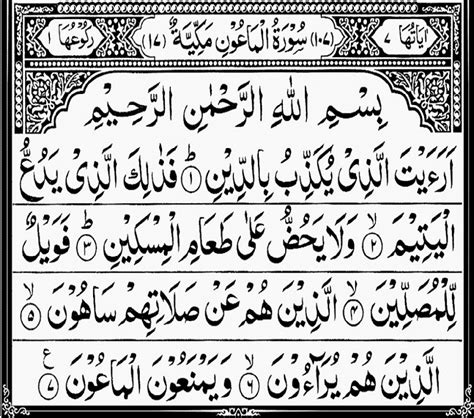 اٰيَاتُهَا ٧ (١٠٧) سُوْرَةُ الْمَاعُوْنِ مَكِّيَّةٌ (١٧) رُكُوْعُهَا ١
بِسْمِ اللّٰهِ الرَّحْمٰنِ الرَّحِيْمِ
اَرَءَيْتَ الَّذِىْ يُكَذِّبُ بِالدِّيْنِ ؕ ١ فَذٰلِكَ الَّذِىْ يَدُعُّ
الْيَتِيْمَ ۙ ٢ وَلَا يَحُضُّ عَلٰى طَعَامِ الْمِسْكِيْنِ ؕ ٣ فَوَيْلٌ
لِّلْمُصَلِّيْنَ ۙ ٤ الَّذِيْنَ هُمْ عَنْ صَلَاتِهِمْ سَاهُوْنَ ۙ ٥
الَّذِيْنَ هُمْ يُرَآءُوْنَ ۙ ٦ وَيَمْنَعُوْنَ الْمَاعُوْنَ ع ٧